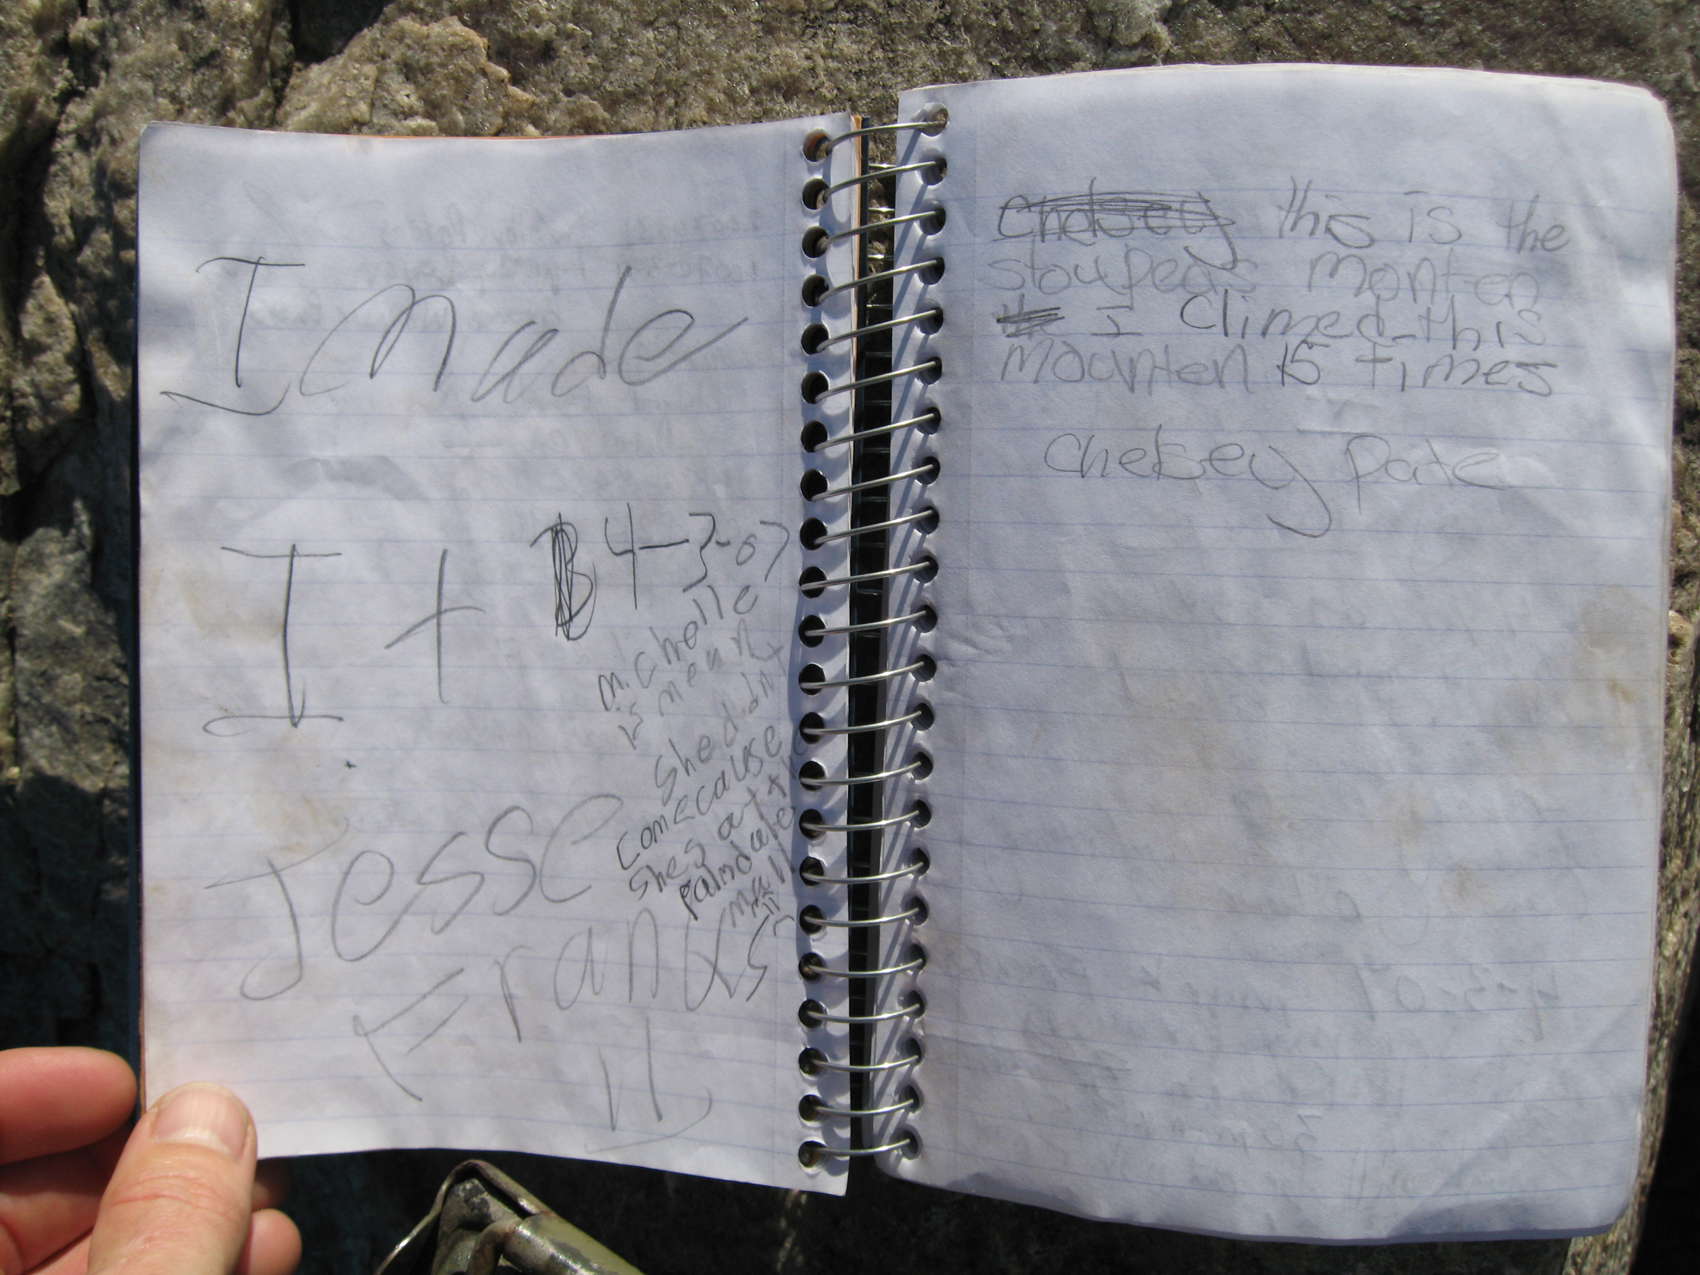 I made
It 4-3-07
michelle
is mean
she didnt
come cause
shes at the
palmdale
mall
Jesse
Franks
this is the
stoupeds monten
I Climed this
mounten 15 times
Chelsey pate